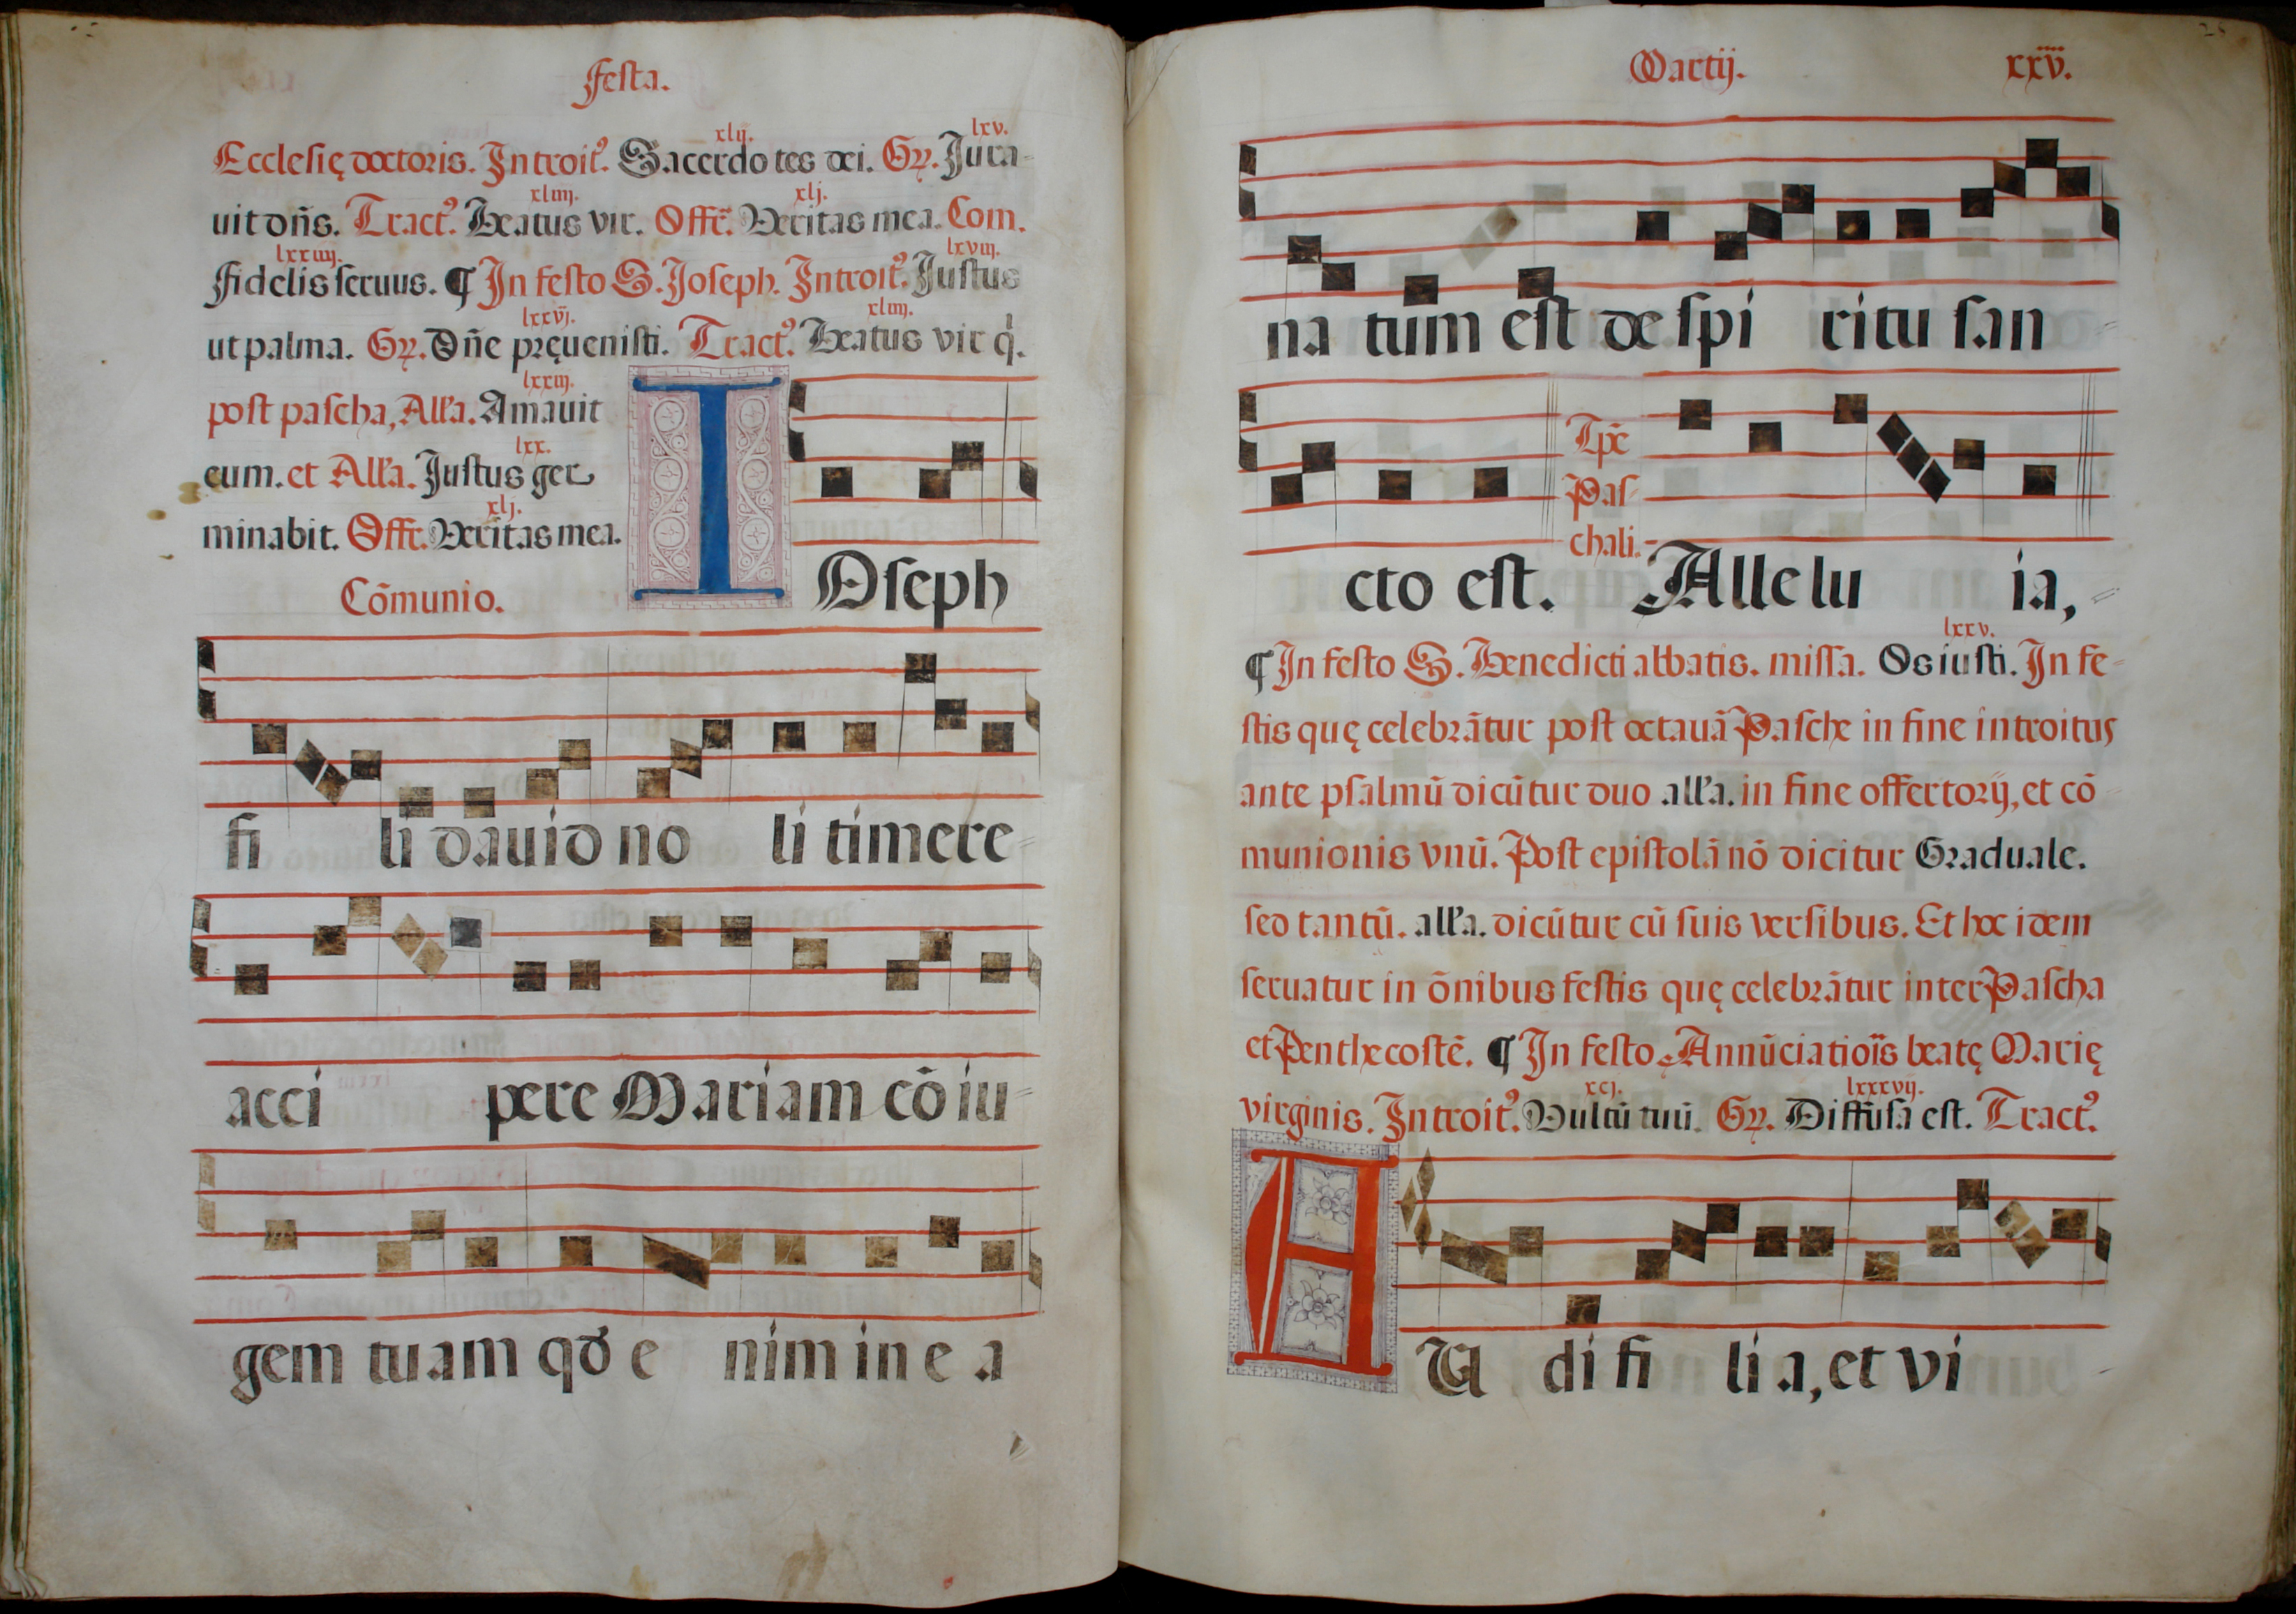 Festa.
xlij. lxv.
Ecclesię doctoris. Introit⁹. Sacerdotes dei. Gr̃. Jura-
xliiij. xlj.
uit dñs. Tract⁹. Beatus vir. Offr̃. Veritas mea. Com.
lxxiiij. lxviij.
Fidelis seruus. ¶ In festo S. Joseph. Introit⁹. Justus
lxxvj. xliiij.
ut palma. Gr̃. Dñe pręuenisti. Tract⁹. Beatus vir q̇.
lxxiij.
post pascha, All'a. Amauit
lxx.
eum. et All'a. Justus ger
xlj.
minabit. Offr. Veritas mea.
Cõmunio.
IOseph
fi li dauid no li timere-
acci pere Mariam cõiu-
gem tuam qđ e nim in e a
Martij. xxv.
na tum est de spi ritu san-
Tp̃e
Pas-
chali.
cto est. Allelu ia,-
lxxv.
¶ In festo S. Benedicti abbatis. missa. Os iusti. In fe-
stis quę celebrãtur post octauã Pasche in fine introitus
ante psalmũ dicũtur duo all'a. in fine offertorij, et cõ-
munionis vnũ. Post epistolã nõ dicitur Graduale.
sed tantũ. all'a. dicũtur cũ suis versibus. Et hoc idem
seruatur in õnibus festis quę celebrãtur inter Pascha
et Penthecostẽ. ¶ In festo Annũciatiõis beatę Marię
xcj. lxxxvij.
virginis. Introit⁹. Vultũ tuũ. Gr̃. Diffusa est. Tract⁹.
AU di fi li a, et vi